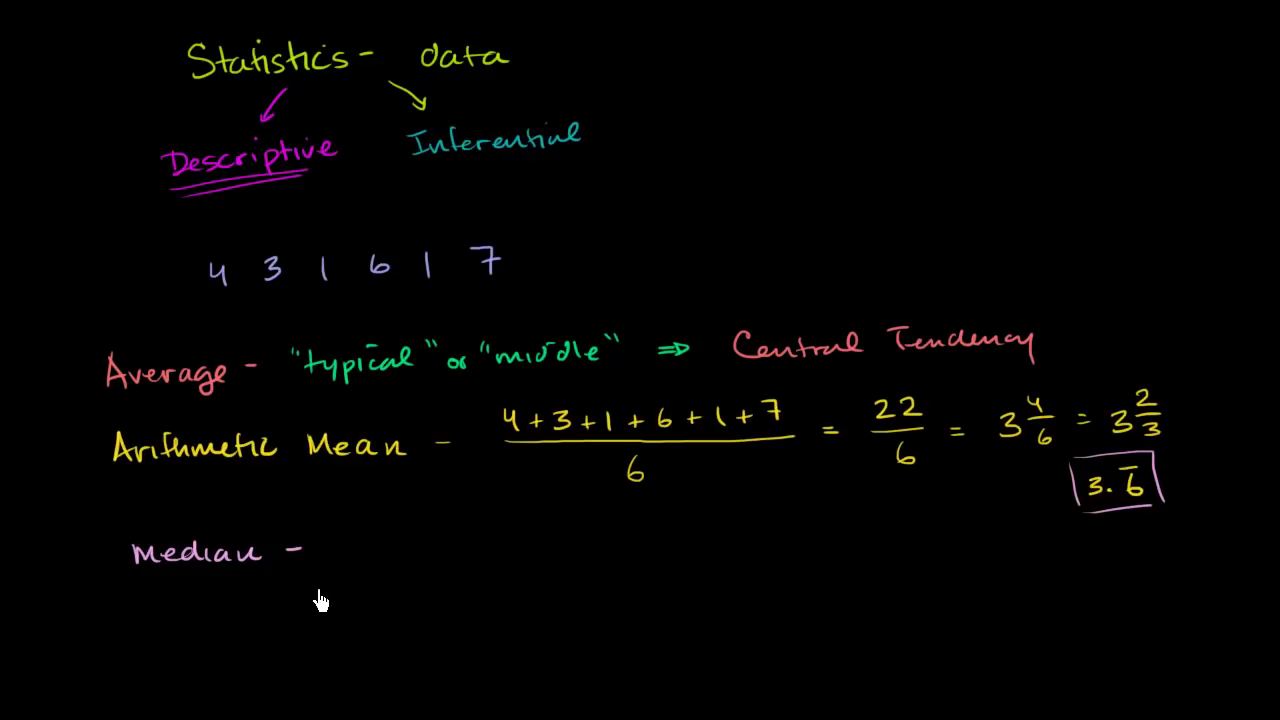 Statistics - data
Descriptive Inferential
4 3 1 6 1 7
Average - "typical" or "middle" ⇒ Central Tendency
Arithmetic Mean - 4+3+1+6+1+7 / 6 = 22/6 = 3 4/6 = 3 2/3
3.6̅
Median -